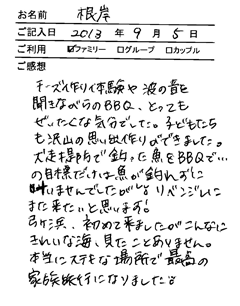 お名前 根岸
ご記入日 2013年9月5日
ご利用 ☑ファミリー □グループ □カップル
ご感想
チーズ作り体験や波の音を
聞きながらのBBQ、とっても
ぜいたくな気分でした。子どもたち
も沢山の思い出作りができました。
犬走堤防で釣った魚をBBQで…
の目標だけは魚が釣れずに
叶いませんでしたが リベンジしに
また来たいと思います!
弓ヶ浜、初めて来ましたがこんなに
きれいな海、見たことありません。
本当にステキな場所で最高の
家族旅行になりました